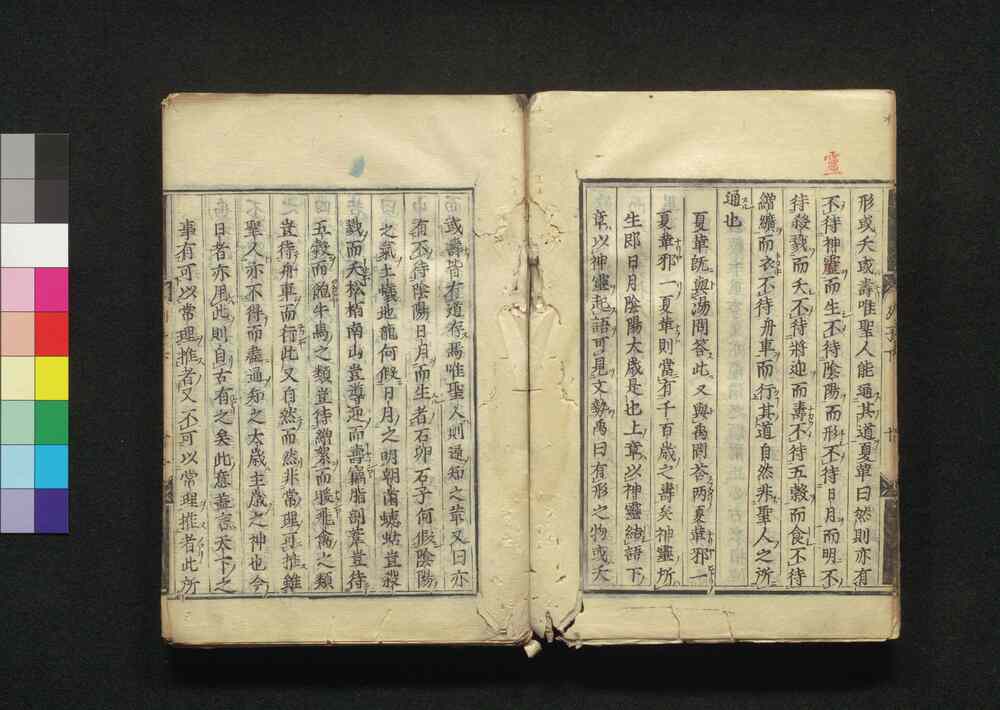 靈
形或夭或壽唯聖人能通其道夏革曰然則亦有
不待神靈而生不待陰陽而形不待日月而明不
待殺戮而夭不待將迎而壽不待五穀而食不待
繒纊而衣不待舟車而行其道自然非聖人之所
通也
夏革既與湯問答此又與禹問答两夏革邪一
夏革邪一夏革則當有千百歲之壽矣神靈所
生即日月陰陽大歲是也上章以神靈結語下
章以神靈起語可見文勢禹曰有形之物或夭
或壽皆有道存焉唯聖人則通知之革又曰亦
有不待陰陽日月而生者石卵石子何假陰陽
之氣土蟻地龍何假日月之明朝菌蟪蛄豈殺
戮而夭松栢南山豈導迎而壽竊脂剖葦豈待
五穀而飽牛馬之類豈待繒絮而暖飛禽之類
豈待舟車而行此又自然而然非常理可推雖
聖人亦不得而盡通知之太歲主歲之神也今
日者亦用此則自古有之矣此意蓋言天下之
事有可以常理推者又不可以常理推者此所